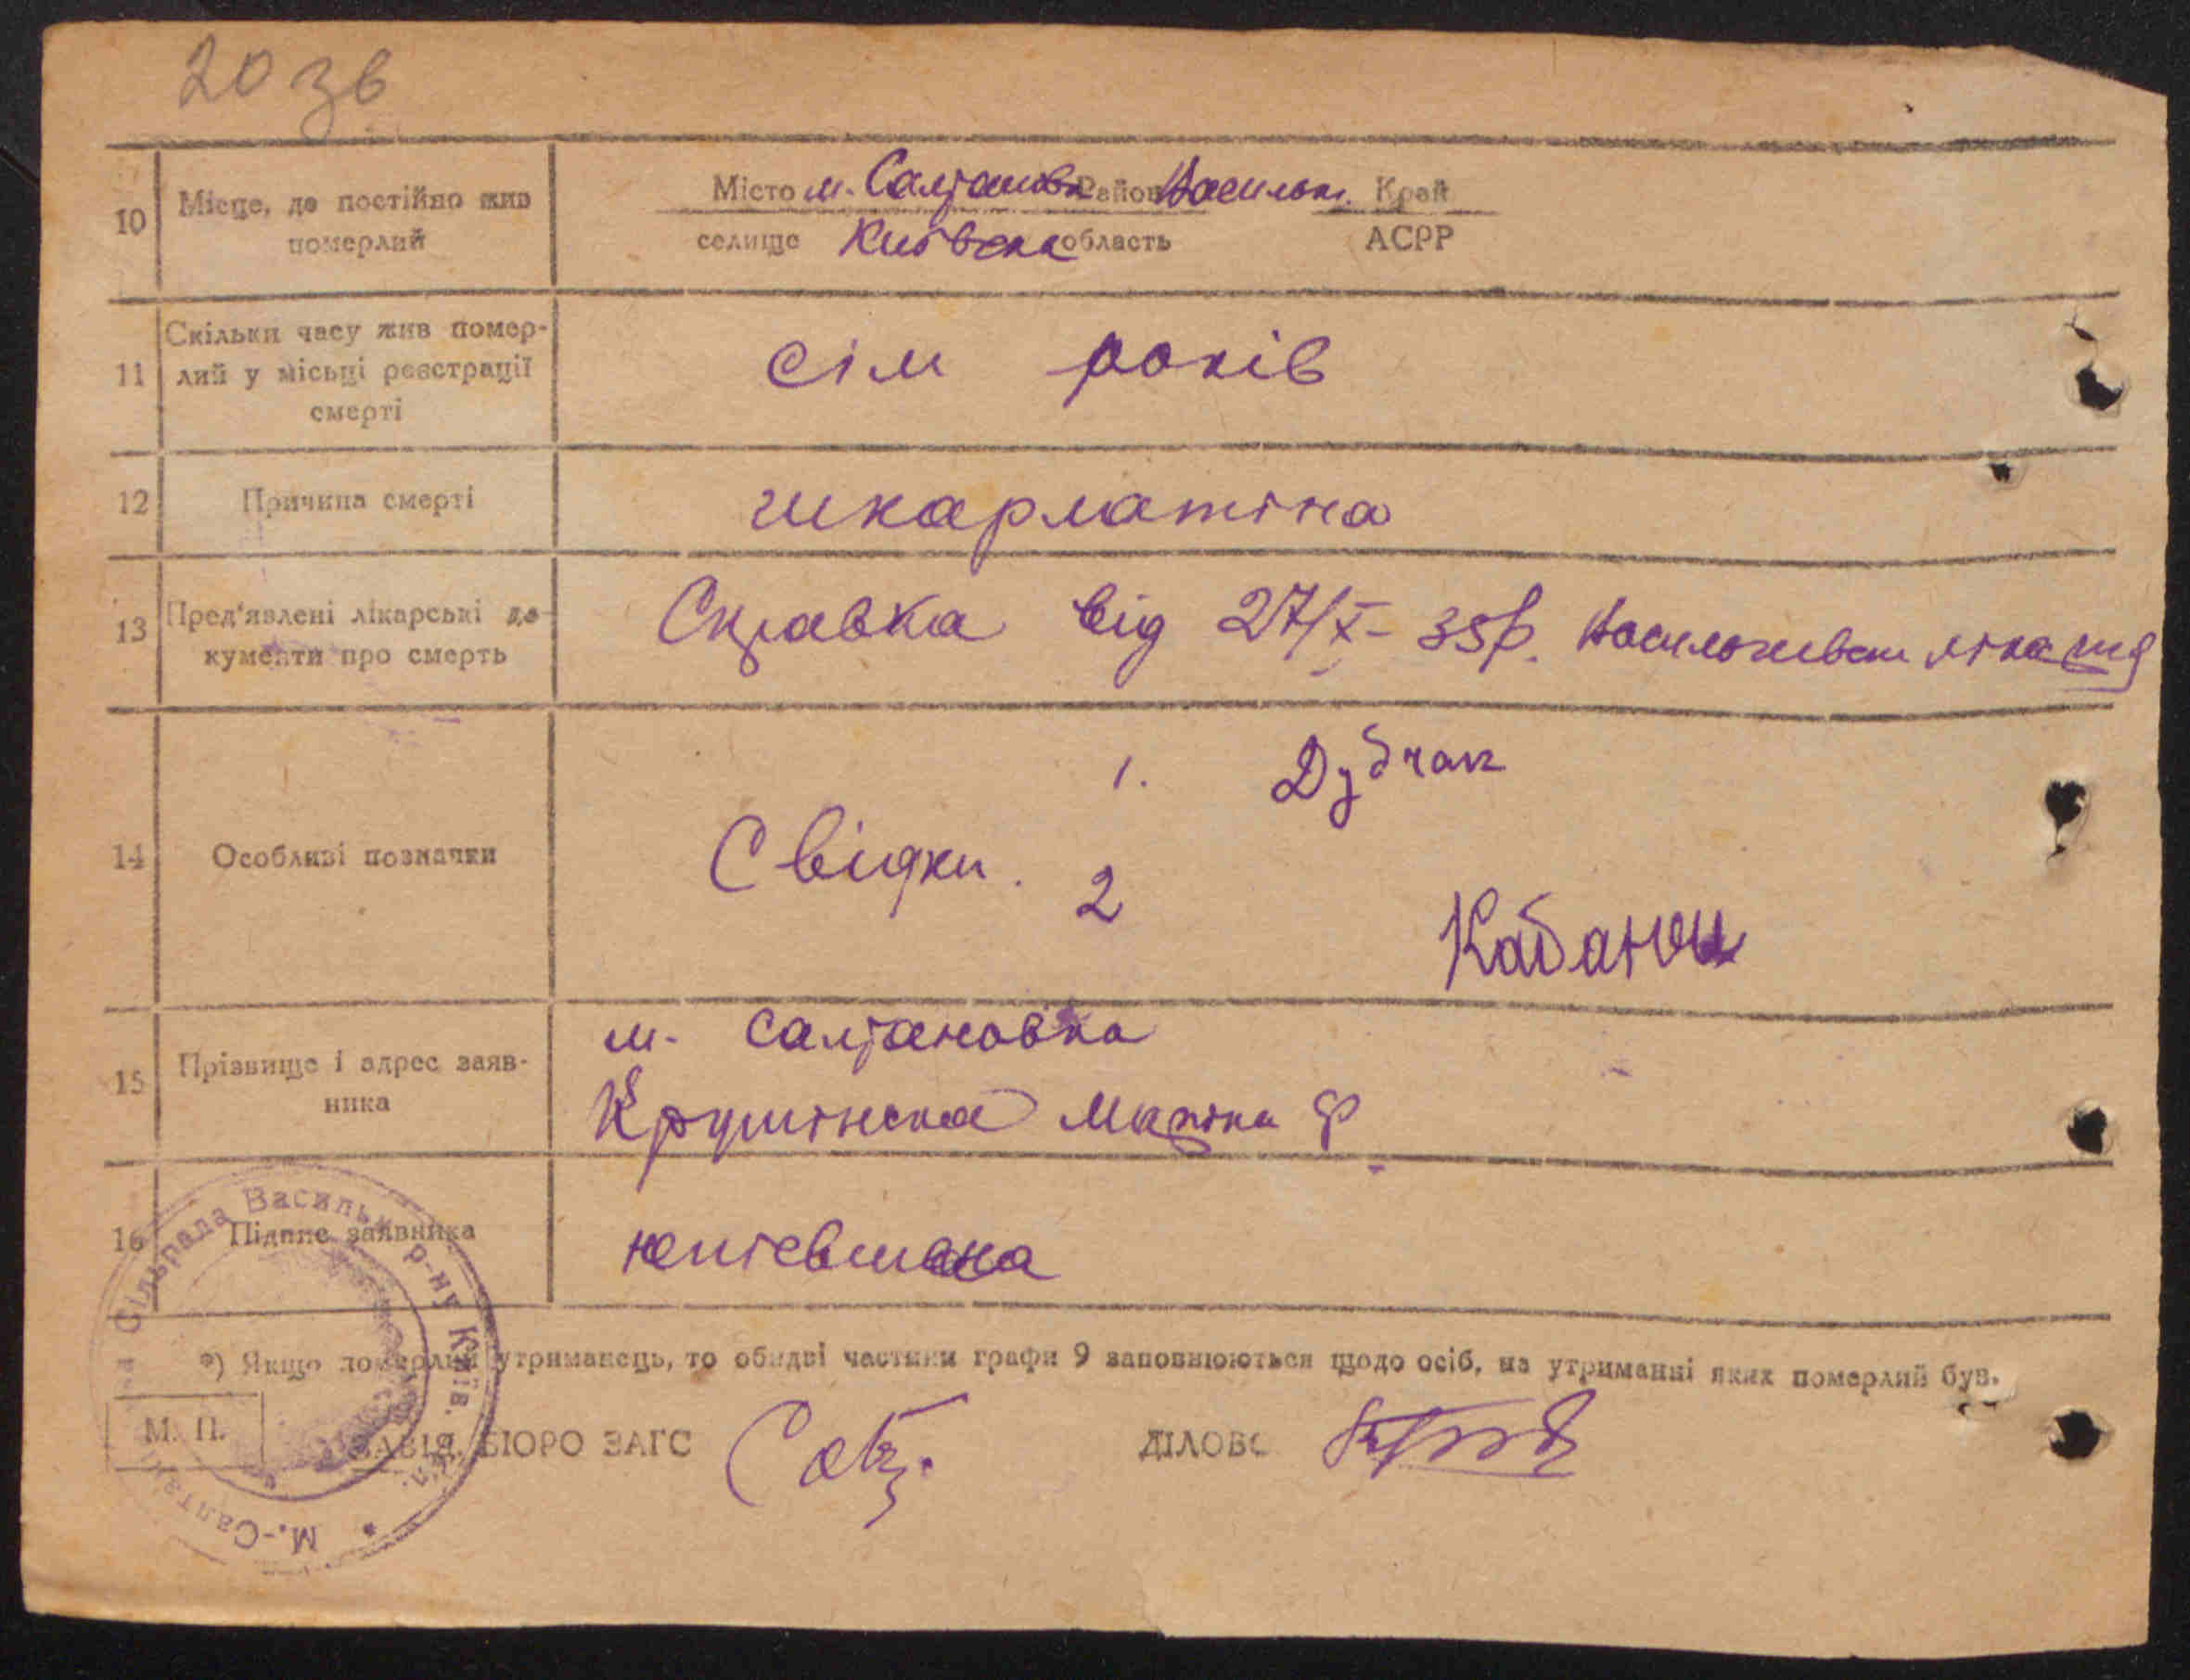 20 зв
10 Місце, де постійно жив померлий
Місто м. Салтановка Район Васильк. Край
селище Київська область АСРР
11 Скільки часу жив померлий у місьці реєстрації смерті
сім років
12 Причина смерті
шкарлатіна
13 Пред'явлені лікарські документи про смерть
Справка від 27/X - 35 р.
14 Особливі позначки
1. Дубчак
Свідки. 2
15 Прізвище і адрес заявника
м. Салтановка
Крушінска
16 Підпис заявника
*) Якщо померлий утриманець, то обидві частини графи 9 заповнюються щодо осіб, на утриманні яких померлий був.
М. П.
ЗАВІД. БЮРО ЗАГС
ДІЛОВОД
М.-Салтанівська Сільрада Васильк. р-ну Київ. обл.